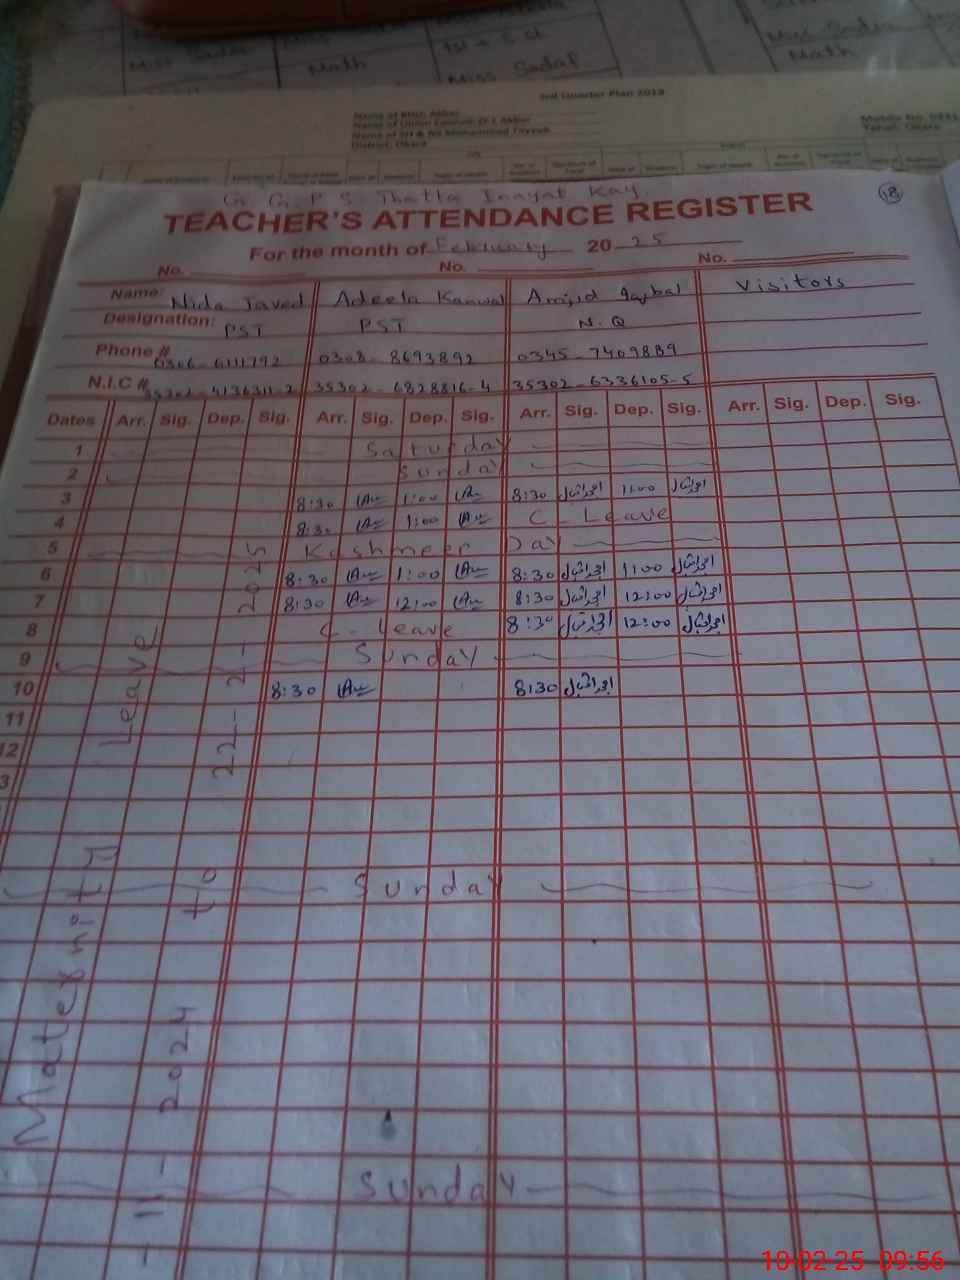 Miss Sadia
Math
Miss Sadaf
Math
3rd Quarter Plan 2019
District: Okara
G. G. P. S. Thatta Inayat Kay
18
TEACHER'S ATTENDANCE REGISTER
For the month of February 2025
No. No. No.
Name: Nida Javed Adeela Kanwal Amjid Iqbal Visitors
Designation: PST PST N.Q
Phone # 0306-6111792 0308-8693892 0345-7409889
N.I.C # 4136311-2 35302-6828816-4 35302-6336105-5
Dates Arr. Sig. Dep. Sig. Arr. Sig. Dep. Sig. Arr. Sig. Dep. Sig. Arr. Sig. Dep. Sig.
1 Saturday
2 Sunday
3 8:30 1:00 8:30 11:00
4 8:30 1:00 C-Leave
5 Kashmeer Day
6 8:30 1:00 8:30 11:00
7 8:30 12:00 8:30 12:00
8 C-Leave 8:30 12:00
9 Sunday
10 8:30 8:30
11
12
3
Sunday
Sunday
Maternity Leave
11-2024 to 22-2-2025
10-02-25 09:56